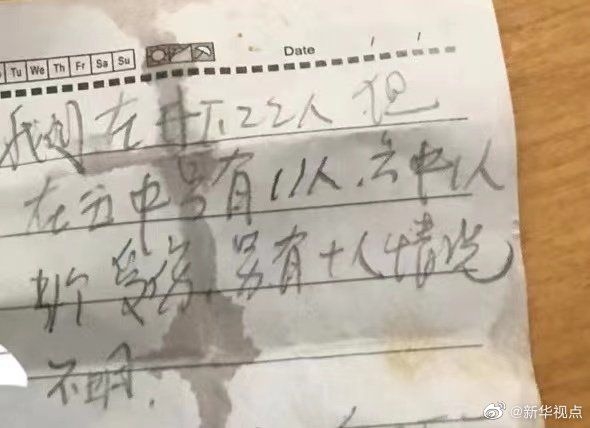 Tu We Th Fr Sa Su Date
我们在井下22人 但
在五中号有11人、六中1人
受伤，另有十人情况
不明.
@新华视点